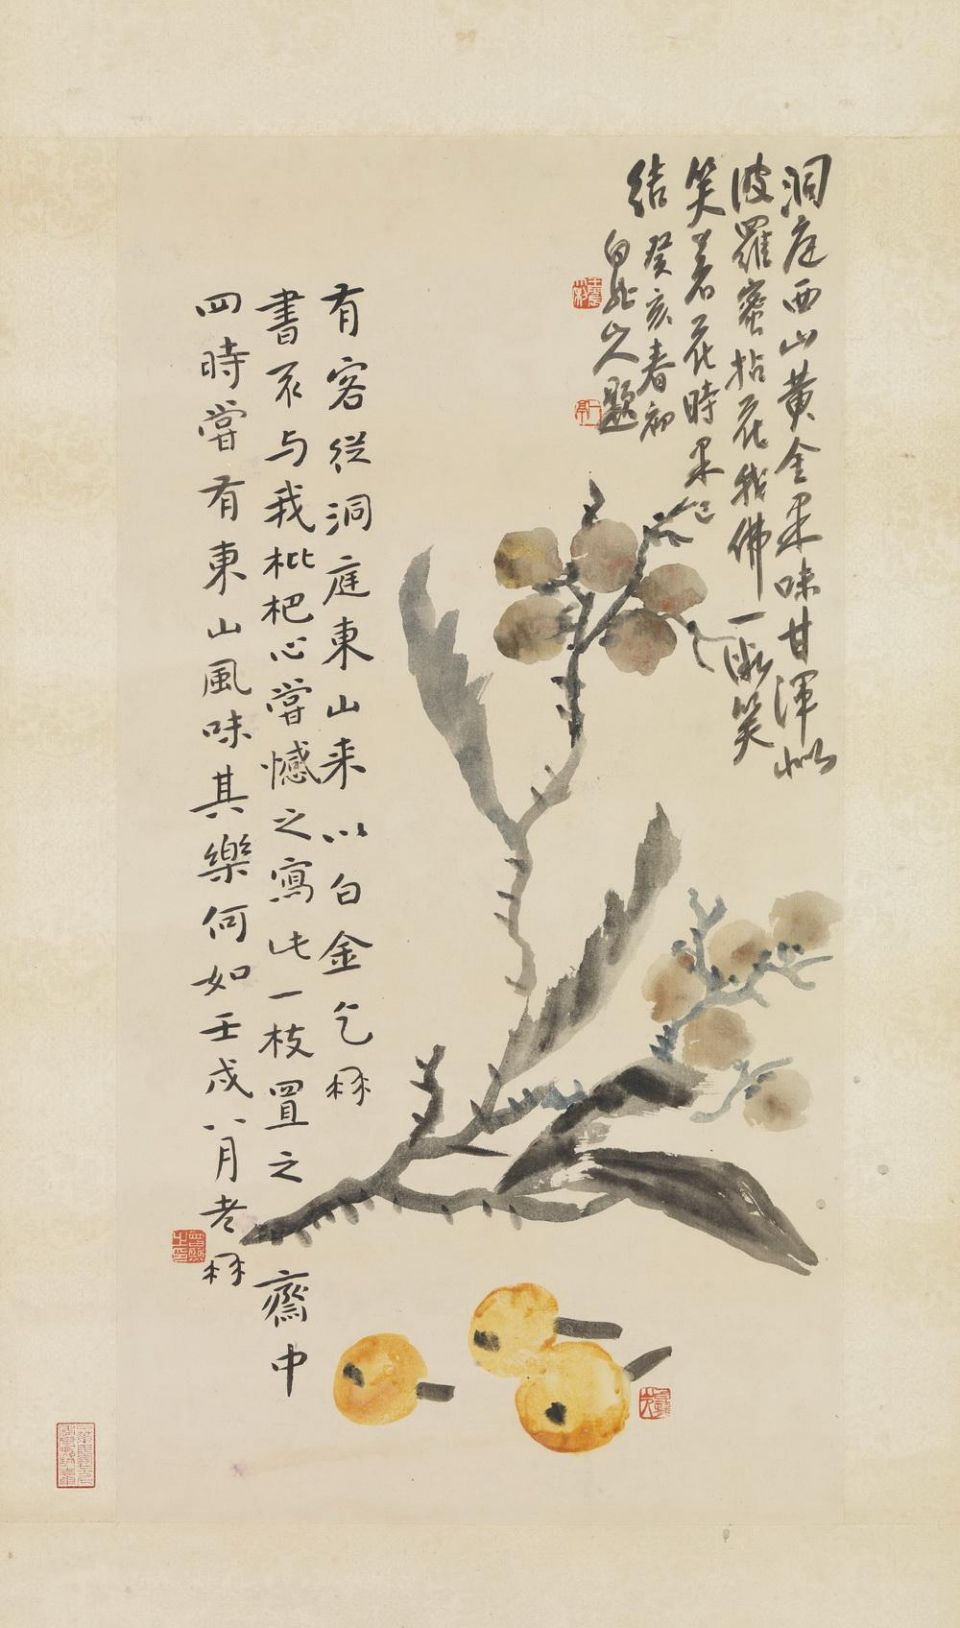 洞庭西山黃金果味甘渾似
波羅蜜拈花我佛一微笑
笑著花時果已
結 癸亥春初
白龍山人題
有客從洞庭東山来以白金乞髯
書不与我枇杷心嘗憾之寫此一枝置之齋中
四時嘗有東山風味其樂何如壬戌八月老髯